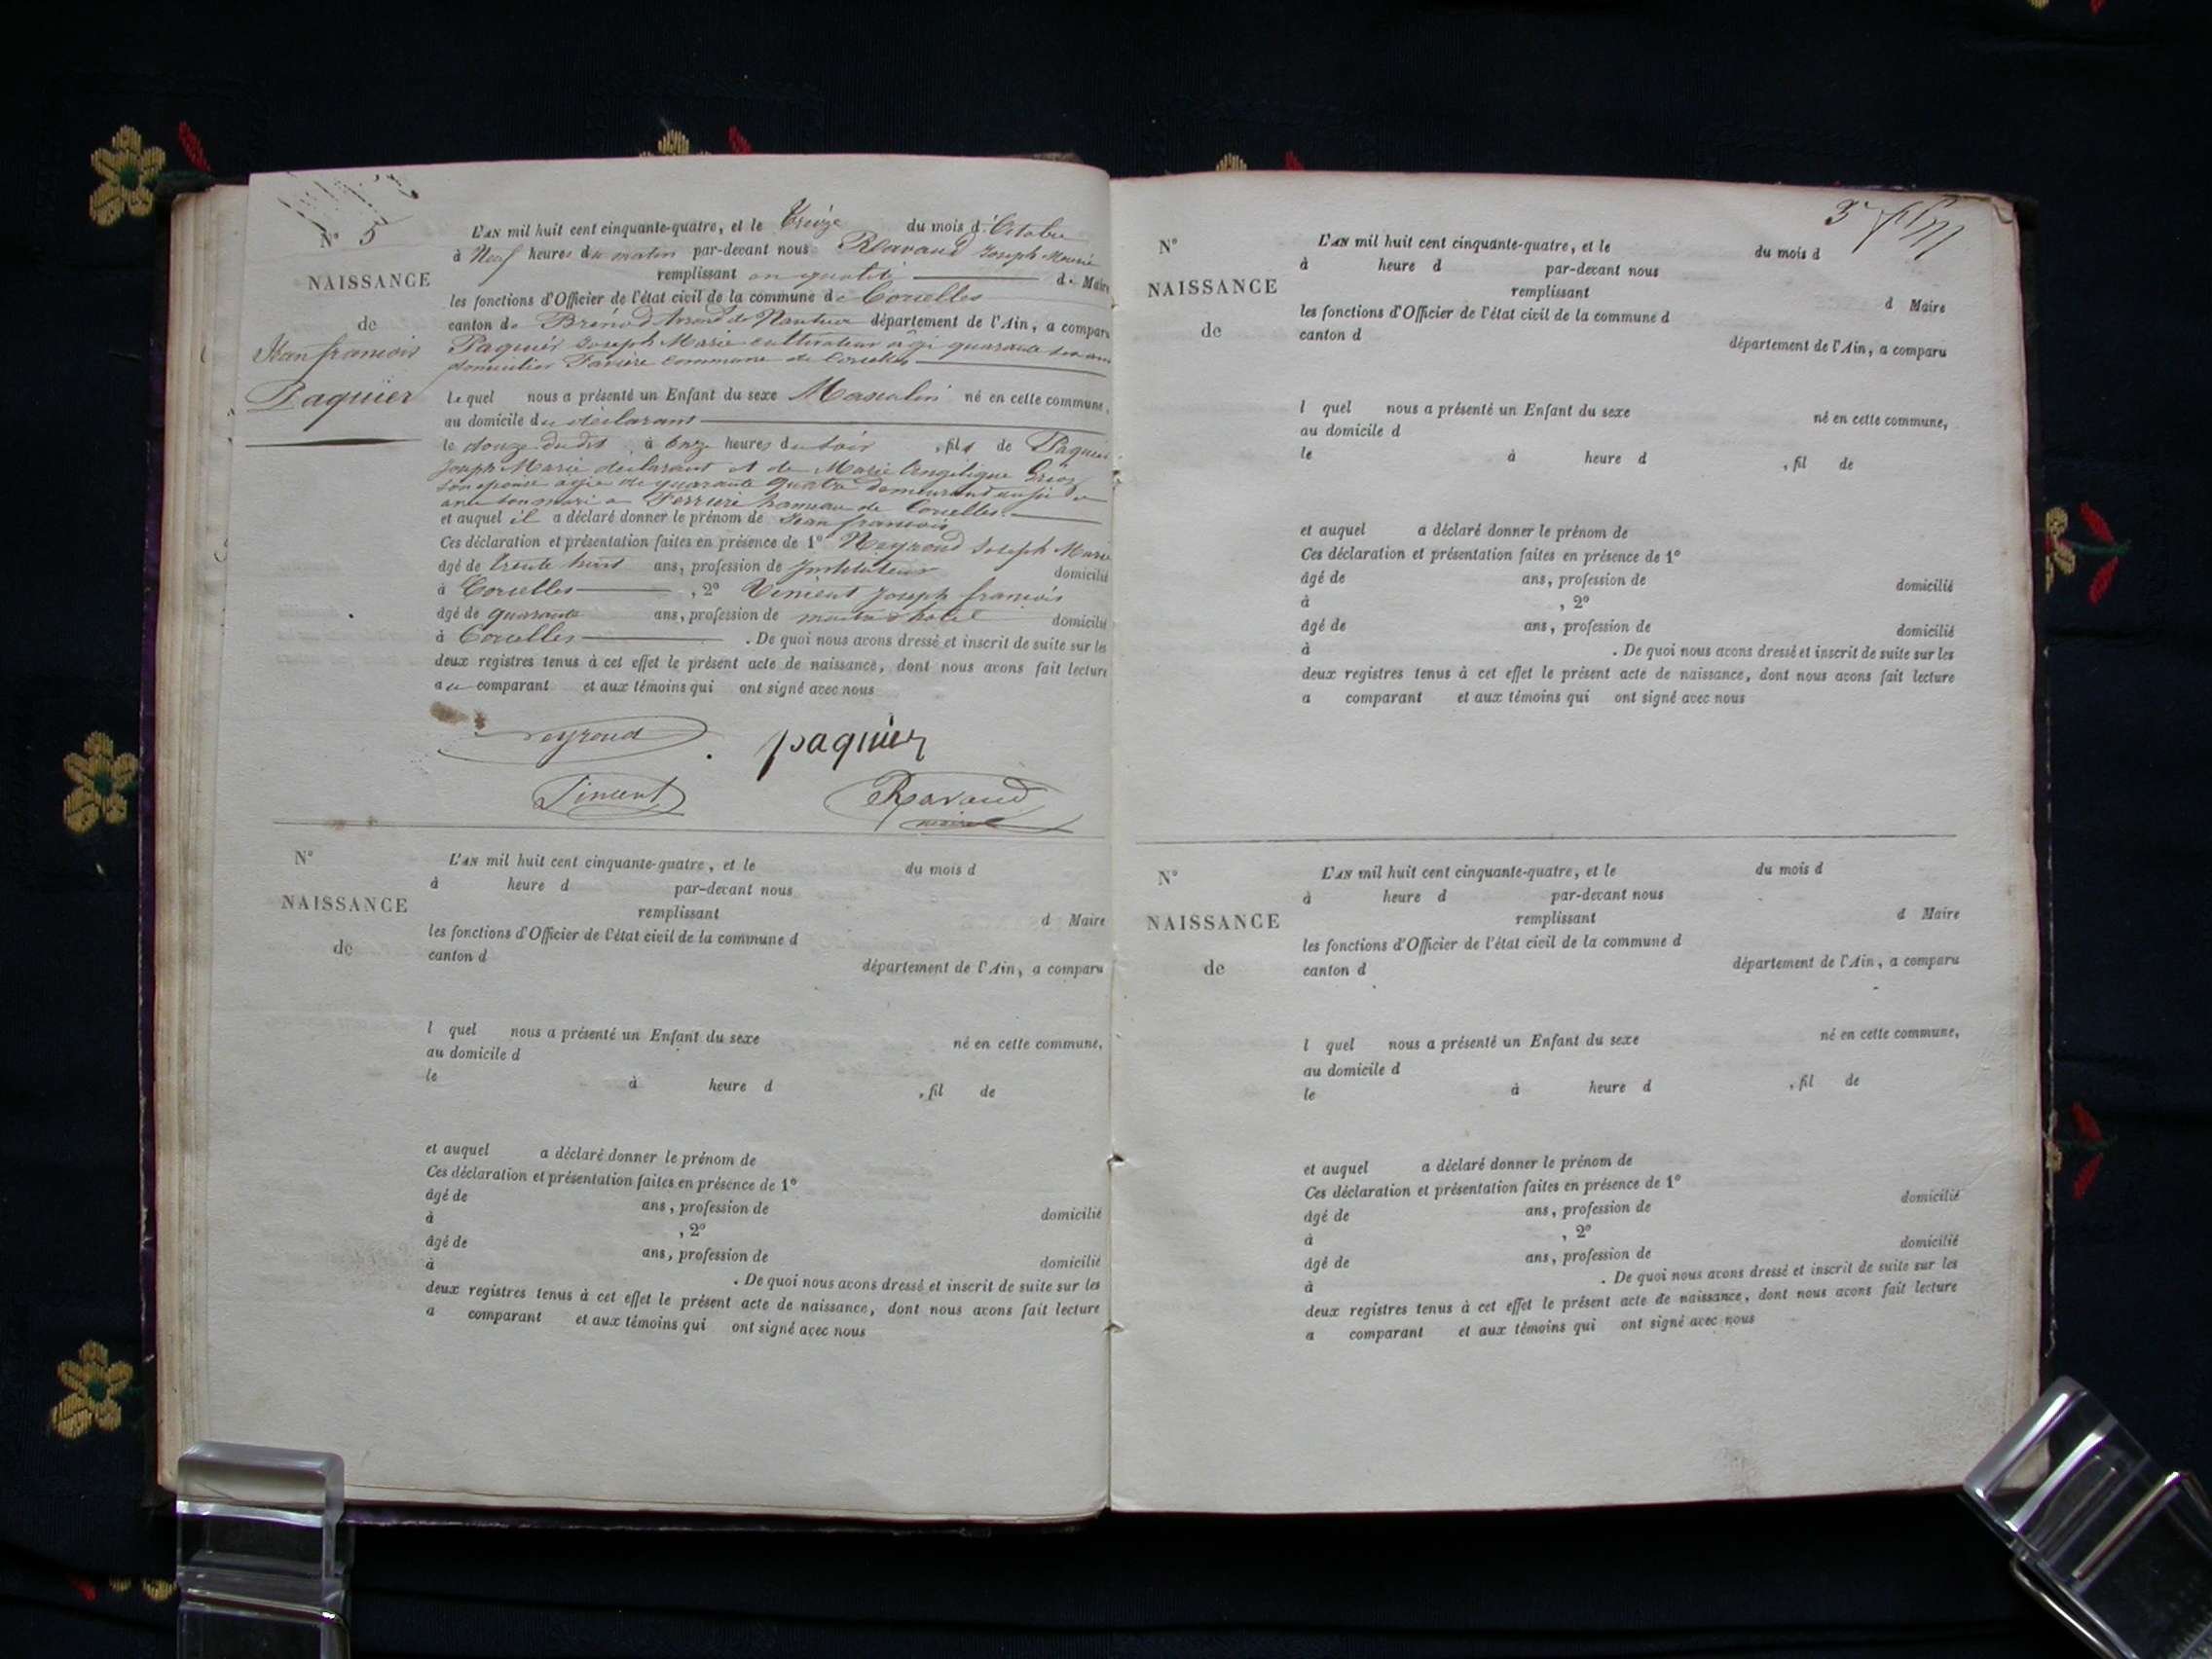 N° 5
NAISSANCE
de
Jean françois
Paquier
L'AN mil huit cent cinquante-quatre, et le treize du mois d'Octobre
à Neuf heures du matin par-devant nous Ravaud Joseph Marie
remplissant en qualité de Maire
les fonctions d'Officier de l'état civil de la commune de Corcelles
canton de Brénod Arrond de Nantua département de l'Ain, a comparu
Paquier Joseph Marie cultivateur âgé quarante ans
domicilié commune de Corcelles
lequel nous a présenté un Enfant du sexe Masculin né en cette commune,
au domicile du déclarant
le douze dudit à onze heures du soir , fils de Paquier
Joseph Marie déclarant et de Marie Angélique
son épouse âgée de quarante quatre demeurant aussi
avec son mari a ferrière hameau de Corcelles
et auquel il a déclaré donner le prénom de Jean françois
Ces déclaration et présentation faites en présence de 1° Neyroud Joseph Marie
âgé de trente huit ans, profession de Instituteur domicilié
à Corcelles , 2° Vincent Joseph françois
âgé de quarante ans, profession de maitre d'hotel domicilié
à Corcelles . De quoi nous avons dressé et inscrit de suite sur les
deux registres tenus à cet effet le présent acte de naissance, dont nous avons fait lecture
au comparant et aux témoins qui ont signé avec nous
Neyroud paquier
Vincent Ravaud
maire
N°
NAISSANCE
de
L'AN mil huit cent cinquante-quatre, et le du mois d
à heure d par-devant nous
remplissant d Maire
les fonctions d'Officier de l'état civil de la commune d
canton d département de l'Ain, a comparu
l quel nous a présenté un Enfant du sexe né en cette commune,
au domicile d
le à heure d , fil de
et auquel a déclaré donner le prénom de
Ces déclaration et présentation faites en présence de 1°
âgé de ans, profession de domicilié
à , 2°
âgé de ans, profession de domicilié
à . De quoi nous avons dressé et inscrit de suite sur les
deux registres tenus à cet effet le présent acte de naissance, dont nous avons fait lecture
a comparant et aux témoins qui ont signé avec nous
3
N°
NAISSANCE
de
L'AN mil huit cent cinquante-quatre, et le du mois d
à heure d par-devant nous
remplissant d Maire
les fonctions d'Officier de l'état civil de la commune d
canton d département de l'Ain, a comparu
l quel nous a présenté un Enfant du sexe né en cette commune,
au domicile d
le à heure d , fil de
et auquel a déclaré donner le prénom de
Ces déclaration et présentation faites en présence de 1°
âgé de ans, profession de domicilié
à , 2°
âgé de ans, profession de domicilié
à . De quoi nous avons dressé et inscrit de suite sur les
deux registres tenus à cet effet le présent acte de naissance, dont nous avons fait lecture
a comparant et aux témoins qui ont signé avec nous
N°
NAISSANCE
de
L'AN mil huit cent cinquante-quatre, et le du mois d
à heure d par-devant nous
remplissant d Maire
les fonctions d'Officier de l'état civil de la commune d
canton d département de l'Ain, a comparu
l quel nous a présenté un Enfant du sexe né en cette commune,
au domicile d
le à heure d , fil de
et auquel a déclaré donner le prénom de
Ces déclaration et présentation faites en présence de 1°
âgé de ans, profession de domicilié
à , 2°
âgé de ans, profession de domicilié
à . De quoi nous avons dressé et inscrit de suite sur les
deux registres tenus à cet effet le présent acte de naissance, dont nous avons fait lecture
a comparant et aux témoins qui ont signé avec nous